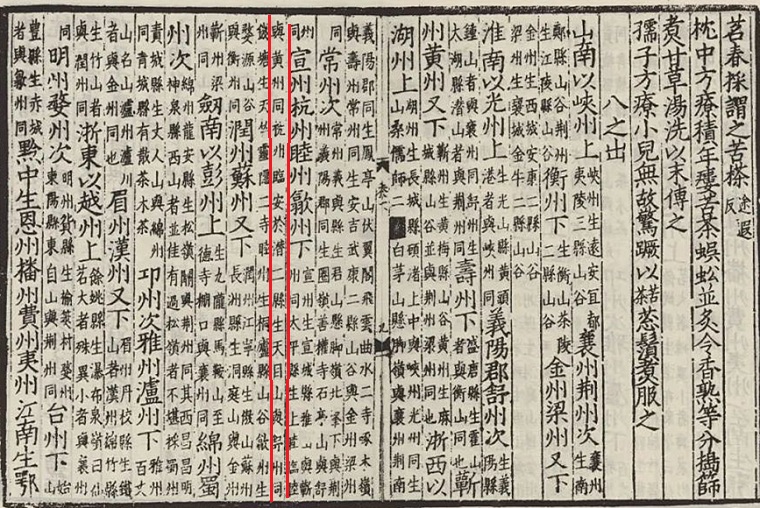 茗春採謂之苦搽途遐反
枕中方療積年瘻苦茶蜈蚣並炙令香熟等分擣篩
煑甘草湯洗以末傅之
孺子方療小兒無故驚蹶以苦茶葱鬚煑服之
八之出
山南以峽州上峽州生遠安宜都夷陵三縣山谷襄州荊州次襄州生南
鄭縣山谷荊州生江陵縣山谷衡州下生衡山茶陵二縣山谷金州梁州又下
金州生西城安康二縣山谷梁州生襄城金牛二縣山谷
淮南以光州上生光山縣黃頭港者與峽州同義陽郡舒州次生義陽縣
鍾山者與襄州同舒州生太湖縣潛山者與荊州同壽州下盛唐縣生霍山者與衡山同也蘄
州黃州又下蘄州生黃梅縣山谷黃州生麻城縣山谷並與荊州梁州同也浙西以
湖州上湖州生長城縣顧渚上中與峽州光州同生山桑儒師二白茅山縣脚嶺與襄州荊南
義陽郡同生鳳亭山伏翼閣飛雲曲水二寺啄木嶺與壽州常州同生安吉武康二縣山谷與金州梁州
同常州次常州義興縣生君山縣脚嶺北峯下與荊州義陽郡同生圈嶺善權寺石亭山與舒州
同宣州杭州睦州歙州下宣州生宣城縣雅山與蘄州同太平縣生上睦臨睦
與黃州同杭州臨安於潛二縣生天目山與舒州同錢塘生天竺靈隱二寺睦州生桐廬縣山谷歙州生
婺源山谷與衡州同潤州蘇州又下潤州江寧縣生傲山蘇州長洲縣生洞庭山與金州
蘄州梁州同劒南以彭州上生九隴縣馬鞍山至德寺棚口與襄州同綿州蜀
州次綿州龍安縣生松嶺關與荊州同其西昌昌明神泉縣西山者並佳有過松嶺者不堪採蜀州
青城縣生丈人山與綿州同青城縣有散茶木茶邛州次雅州瀘州下雅州百丈
山名山瀘州瀘川者與金州同也眉州漢州又下眉州丹校縣生鐵山者漢州綿竹縣
生竹山者與潤州同浙東以越州上餘姚縣生瀑布泉嶺曰仙茗大者殊異小者與襄州
同明州婺州次明州貨縣生榆莢村婺州東陽縣東自山與荊州同台州下始山
豐縣生赤城者與歙州同黔中生恩州播州費州夷州江南生鄂